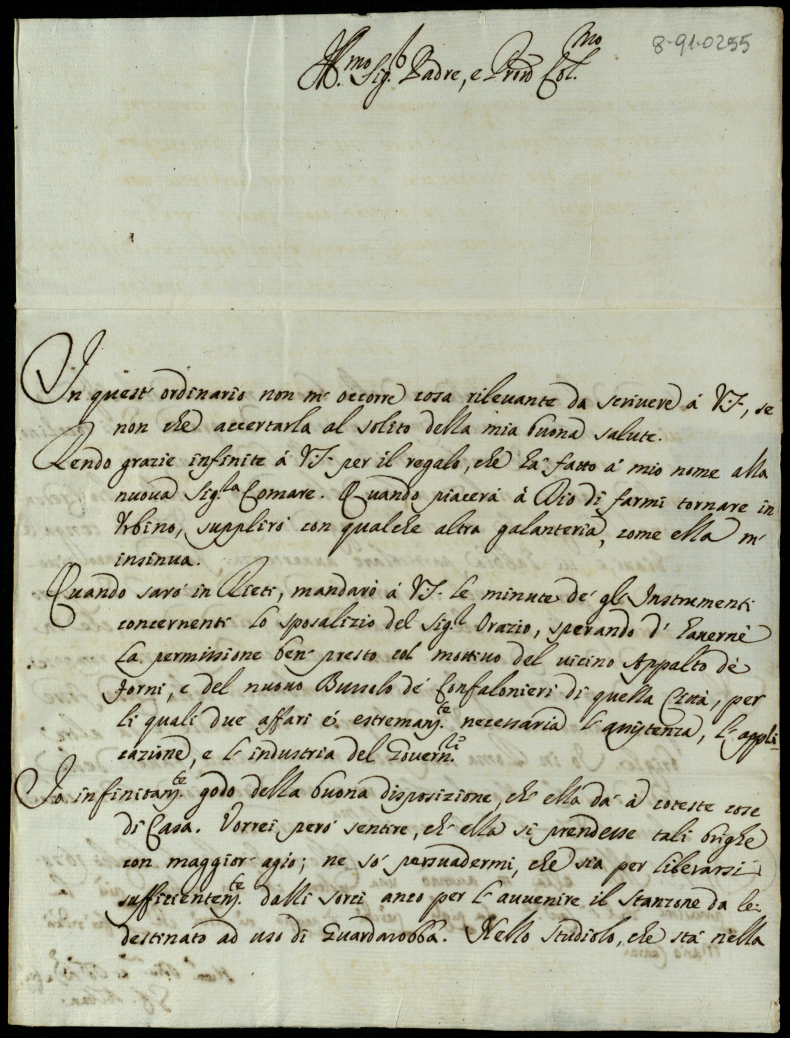 8-91-0255
Ill.mo Sig.r Padre, e Pron Col.mo
In quest' ordinario non m' occorre cosa rileuante da scriuere á V.S., se
non che accertarla al solito della mia buona salute.
Rendo grazie infinite á V.S. per il regalo, che ha' fatto á mio nome alla
nuoua Sig.la Comare. Quando piacerá á Dio di farmi tornare in
Vrbino, suppliró con qualche altra galanteria, come ella m'
insinua.
Quando saró in Rieti, mandaró á V.S. le minute de' gl' Instrumenti
concernenti lo sposalizio del Sig.r Orazio, sperando d' hauerne
la permissione ben' presto col mottiuo del uicino Appalto de'
forni, e del nuouo Bussolo de' Confalonieri di quella Città, per
li quali due affari é estremam.te necessaria l' assistenza, l' appli-
cazione, e l' industria del Gouern.re
Io infinitam.te godo della buona disposizione, ch' ella dá á coteste cose
di Casa. Vorrei peró sentire, ch' ella si prendesse tali brighe
con maggior agio; ne só persuadermi, che sia per liberarsi
sufficientem.te dalli sorci anco per l' auuenire il stanzone da lei
destinato ad uso di Guardarobba. Nello studiolo, che stá nella